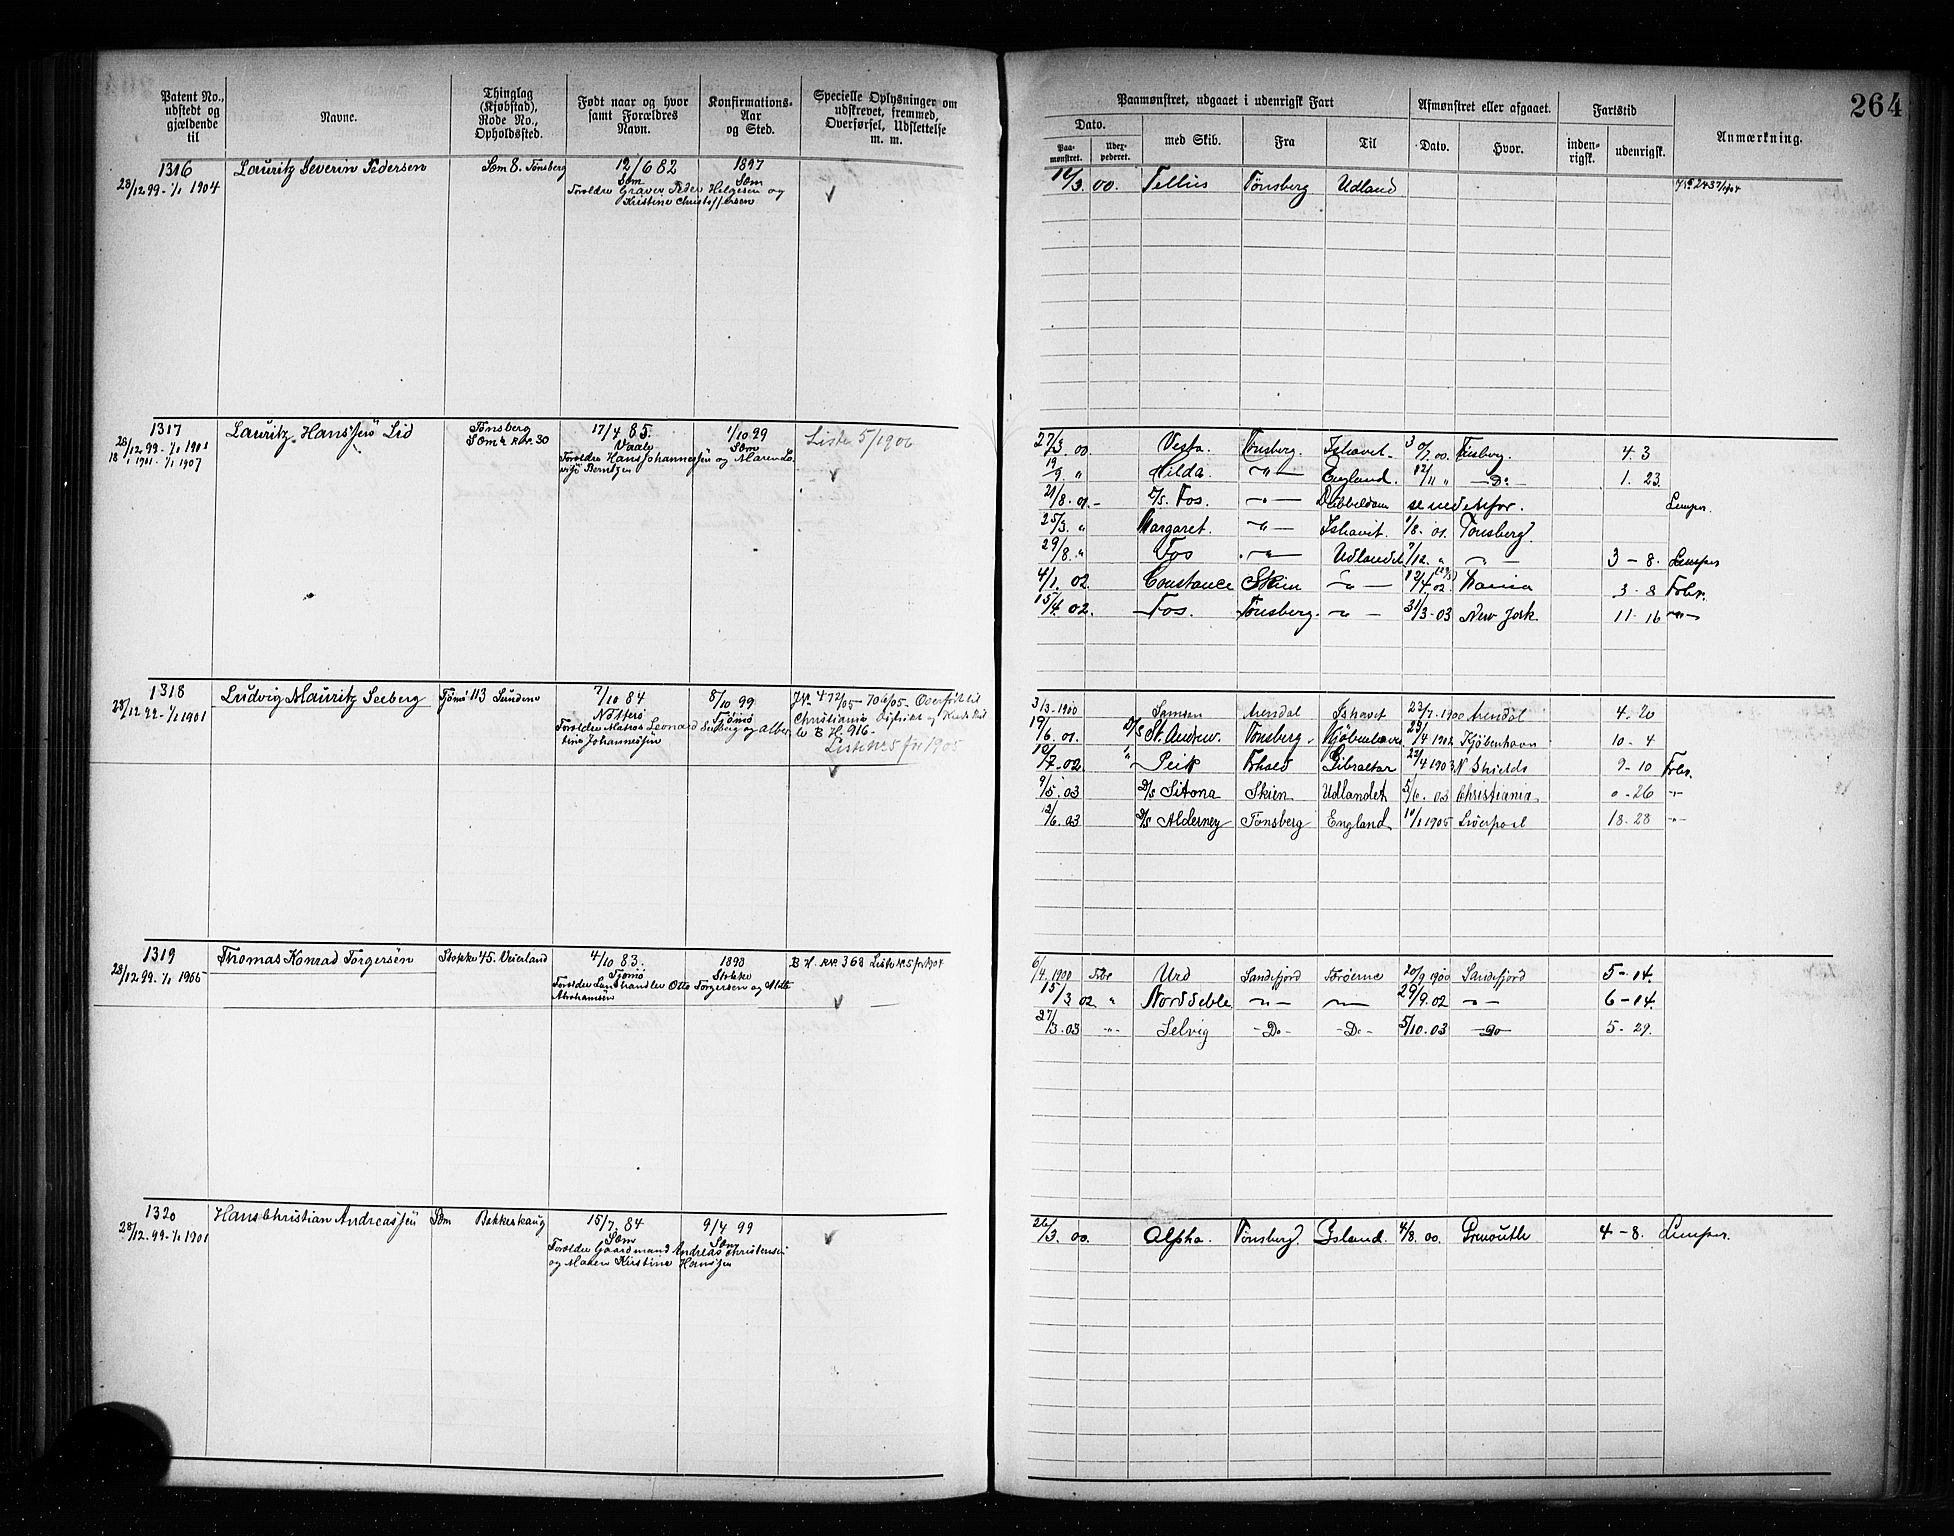 264
Patent No., udstedt og gjældende til
Navne.
Thinglag (Kjøbstad), Rode No., Opholdssted.
Født naar og hvor samt Forældres Navn.
Konfirmations-Aar og Sted.
Specielle Oplysninger om udskrevet, fremmed, Overførsel, Udslettelse m. m.
Paamønstret, udgaaet i udenrigsk Fart
Afmønstret eller afgaaet.
Fartstid
Anmærkning.
Dato.
Paamønstret.
Udexpederet.
med Skib.
Fra
Til
Dato.
Hvor.
indenrigsk.
udenrigsk.
1316
28/12 99 - 1/1 1904
Lauritz Severin Pedersen
Sem 8. Tønsberg
12/6 82
Sem
Forældre Graver Peder Helgesen og
Kristine Christoffersen
1897
Sem
16/3. 00. Tellus Tønsberg Udland
1317
28/12 99 - 1/1 1901
18/1 1901 - 1/1 1907
Lauritz Hanssen Lid
Tønsberg
Sem R.No. 30
17/4 85.
Vaale
Forældre Hans Johannessen og Maren Lovise Berntsen
1/10 99
Sem
Liste 5/1906
27/3. 00 Vesta. Tønsberg. Ishavet. 30/7. 00. Tønsberg. 4. 3
19/9 " Hilda. — " — England. 12/11 " — Do — 1. 23.
21/8. 01. - D/S. Fos. — " — se nedenfor. Lemper.
25/3. " Margaret. — " — Ishavet. 1/8. 01. Tønsberg.
29/8. " Fos — " — Udlandet 7/12. " — " — 3 - 8. Lemper
4/1. 02 Constance Skien — " — 12/4. 02 3. 8 Fobr.
15/4. 02. Fos. Tønsberg. — " — 31/3. 03 New York 11. 16 — " —
1318
28/12 99. - 1/1 1901
Ludvig Mauritz Seeberg
Tjømø 113 Sundene
7/10 84
Nøtterø
Forældre Matros Leonard Seeberg og Albertine Johannessen
8/10 99
Tjømø
J.No. 472/05 - 706/05. Overført til
Christiania Distrikt og Kredsblad
B H. 916 -
Liste No. 5 for 1905
3/3. 1900 Samson Arendal Ishavet 23/7. 1900 Arendal 4. 20
19/6. 01. D/S St. Andrew. Tønsberg. Kjøbenhavn 29/4 1902 Kjøbenhavn 10 - 4
10/7. 02. " Peik Fr.hald Gibraltar 22/4 1903 N Shields 9 - 10 Fobr.
9/5. 03 D/S Sitona Skien Udlandet 5/6. 03 Christiania 0 - 26 — " —
12/6. 03 D/S Alderney Tønsberg England 10/1 1905 Liverpool 18. 28 — " —
1319
28/12 99. - 1/1 1905
Thomas Konrad Torgersen
Stokke 45. Veierland
4/10 83.
Tjømø
Forældre Landhandler Otto Torgersen og Mette
Abrahamsen
1898
Stokke
B H. R.No. 368 Liste No. 5 for 1904
6/4. 1900 Urd Sandefjord Færøerne 20/9 1900 Sandefjord 5 - 14.
15/3 02 " Norddeble — " — — " — 29/9. 02 — " — 6 - 14.
27/3. 03 — " — Selvig — Do — — Do — 5/10. 03 — Do 5 - 29.
1320
28/12. 99 - 1/1 1901
Hans Christian Andreassen
Sem Bekkeskaug
15/7. 84
Sem
Forældre Gaardmand Andreas Christensen
og Maren Kirstine Hanssen
9/4 99
Sem
26/3. 00. Alpha. Tønsberg. Island. 4/8. 00. 4 - 8. Lemper.